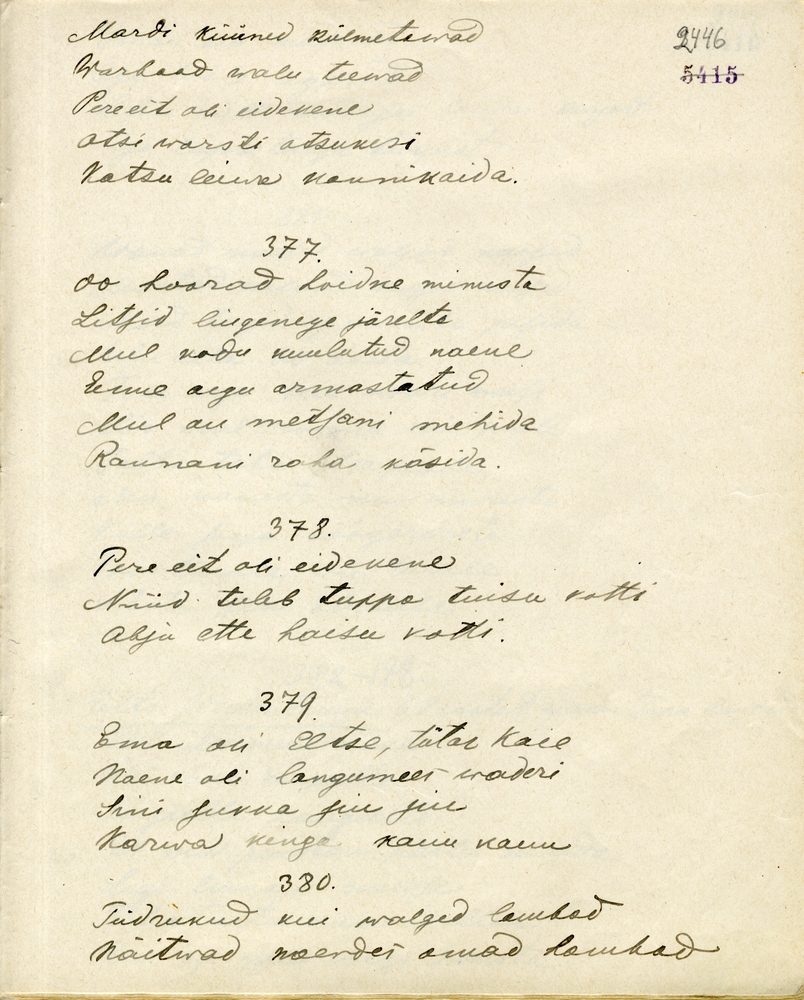 2446
5415
Mardi küüned külmetawad
Warbaad walu teewad
Pereeit oli eidekene
Otsi warsti otsukesi
Katsu leiwa kannikaida.
377.
oo hoorad hoidke minusta
Litsid lingenege järelta
Mul kodu kuulutud naene
Enne aegu armastatud
Mul on metsani mehida
Raunani raha käsida.
378.
Pere eit oli eidekene
Nüüd tuleb tuppa tuisu kotti
Ahju ette haisu kotti.
379
Ema oli Eltse, tütar Kaie
Naene oli langumees waderi
Sini sukka siu siu
Karwa kinga kauu kauu
380.
Tüdrukud kui walged lambad
Näitwad naerdes omad hambad